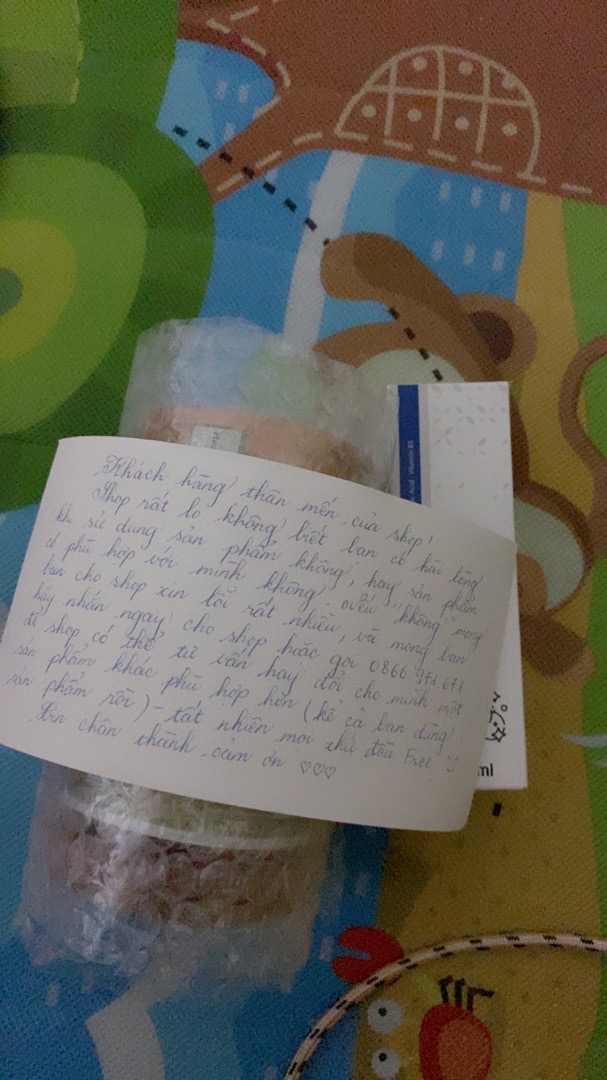 Khách hàng thân mến của shop!
Shop rất lo không biết bạn có hài lòng
khi sử dụng sản phẩm không, hay sản phẩm
có phù hợp với mình không. Nếu "không" mong
bạn cho shop xin lỗi rất nhiều, và mong bạn
hãy nhắn ngay cho shop hoặc gọi 0866 971 671
để shop có thể tư vấn hay đổi cho mình một
sản phẩm khác phù hợp hơn (kể cả bạn dùng
sản phẩm rồi) - tất nhiên mọi thứ đều Free
Xin chân thành cảm ơn ♡♡♡
Acid Vitamin B5
ml